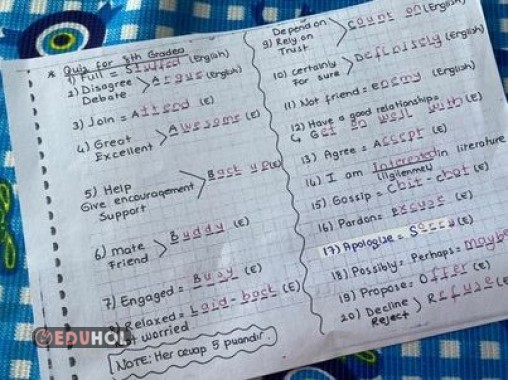 * Quiz for 8th Grades
1) Full = Stuffed (English)
2) Disagree
Debate > Argue (English)
3) Join = Attend (E)
4) Great
Excellent > Awesome (E)
5) Help
Give encouragement
Support > Back up (E)
6) mate
Friend > Buddy (E)
7) Engaged = Busy (E)
Relaxed = Laid-back (E)
worried
NOTE: Her cevap 5 puandır.
Depend on
9) Rely on
Trust > Count on (English)
10) certainly
For sure > Definitely (English)
11) Not friend = enemy (English)
12) Have a good relationship =
Get on well with (E)
13) Agree = Accept (E)
14) I am Interested in literature
(ilgilenmek)
15) Gossip = Chit-chat (E)
16) Pardon = excuse (E)
17) Apologise = Sorry (E)
18) Possibly = Perhaps = maybe
19) Propose = Offer (E)
20) Decline
Reject > Refuse (E)
EDUHOL